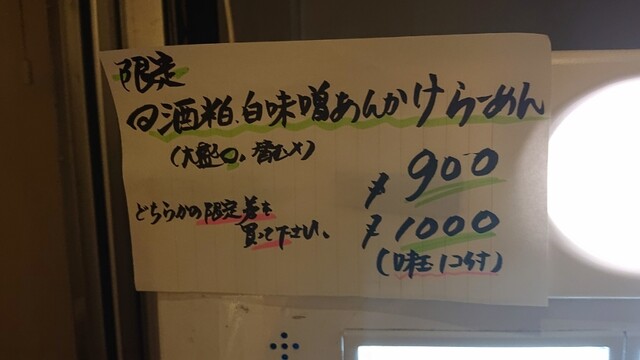 限定
酒粕、白味噌あんかけらーめん
(大盛〇、替玉×)
¥900
どちらかの限定券を
買って下さい、
¥1000
(味玉1コ付)